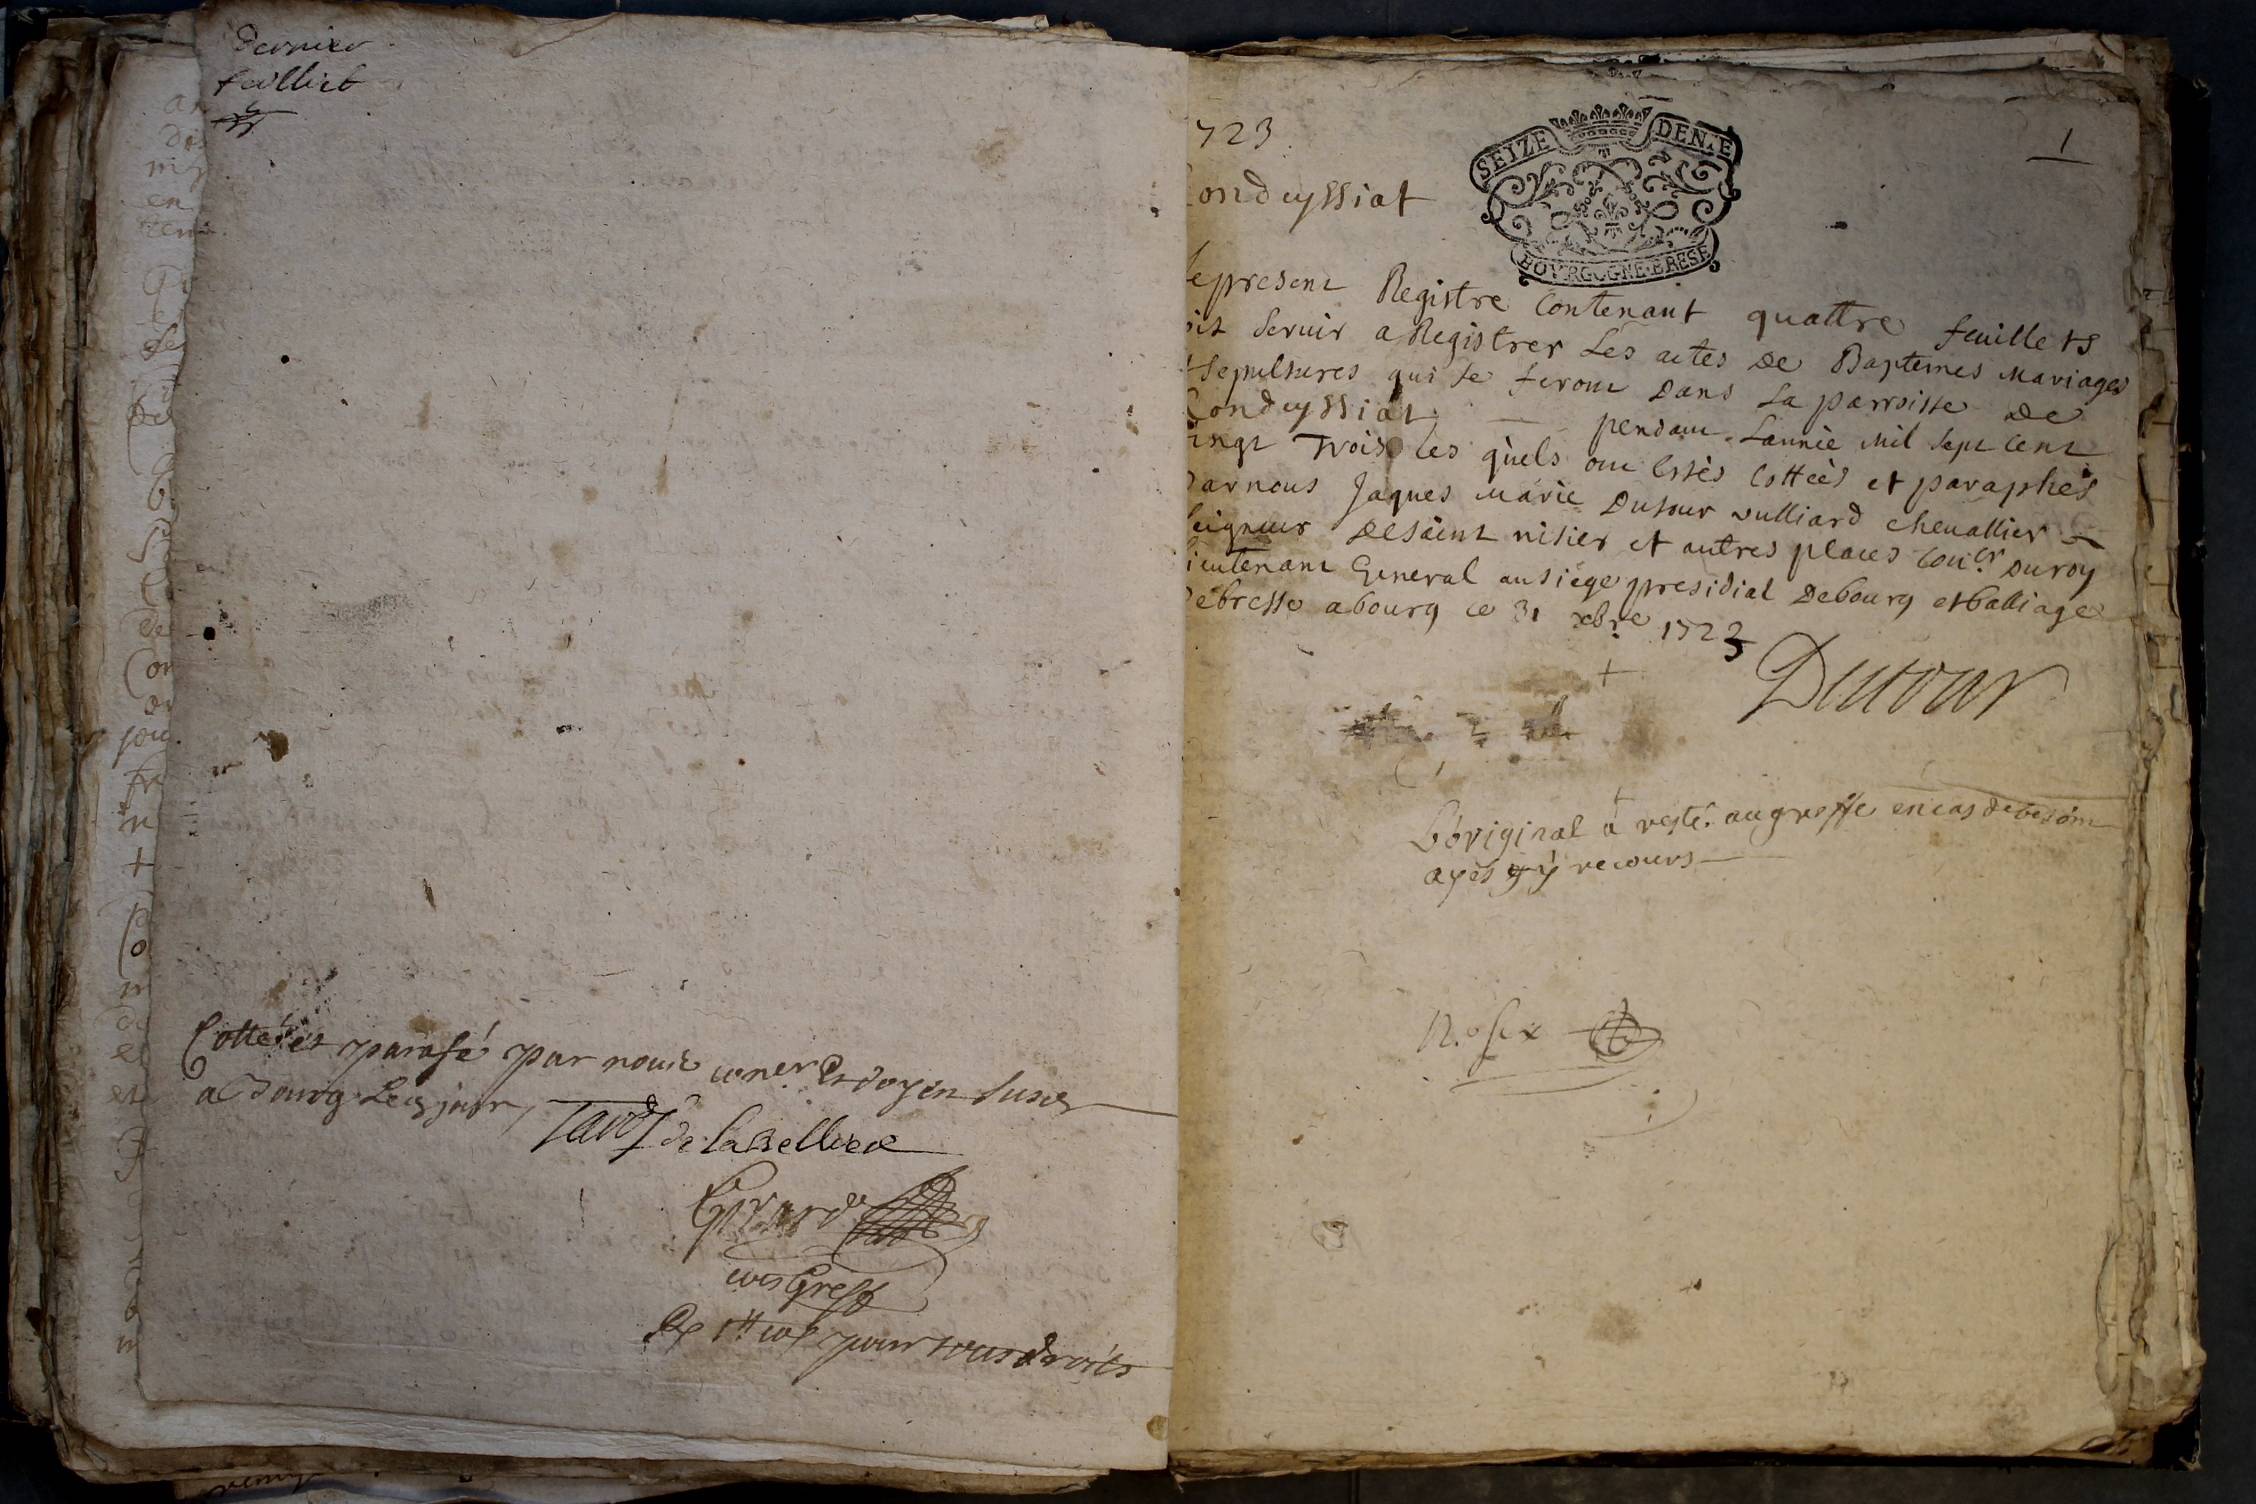 dernier
feuillet
Cottè et parafé par nous coner et doyen
a Bourg Les jour,
de La
Girard
Greff
pour tous droits
723
1
SEIZE DEN.LE
BOVRGOGNE.BRESE
Condeyssiat
Le present Registre Contenant quattre feuillets
oit servir a Registrer Les actes de Baptemes Mariages
t Sepultures qui se feront Dans La parroisse de
Condeyssiat pendant Lannée Mil Sept Cent
ingt Trois Les quels ont Estés Cottéés et paraphés
Par nous Jaques Marie Dutour vulliard chevallier
Seigneur de saint nisier et autres places Con.er du roy
Lieutenant General au siege presidial De bourg et balliage
De bresse a bourg ce 31 xbre 1723
Dutour
L'original a resté au greffe en cas de besoin
ayés y recours
N.o six